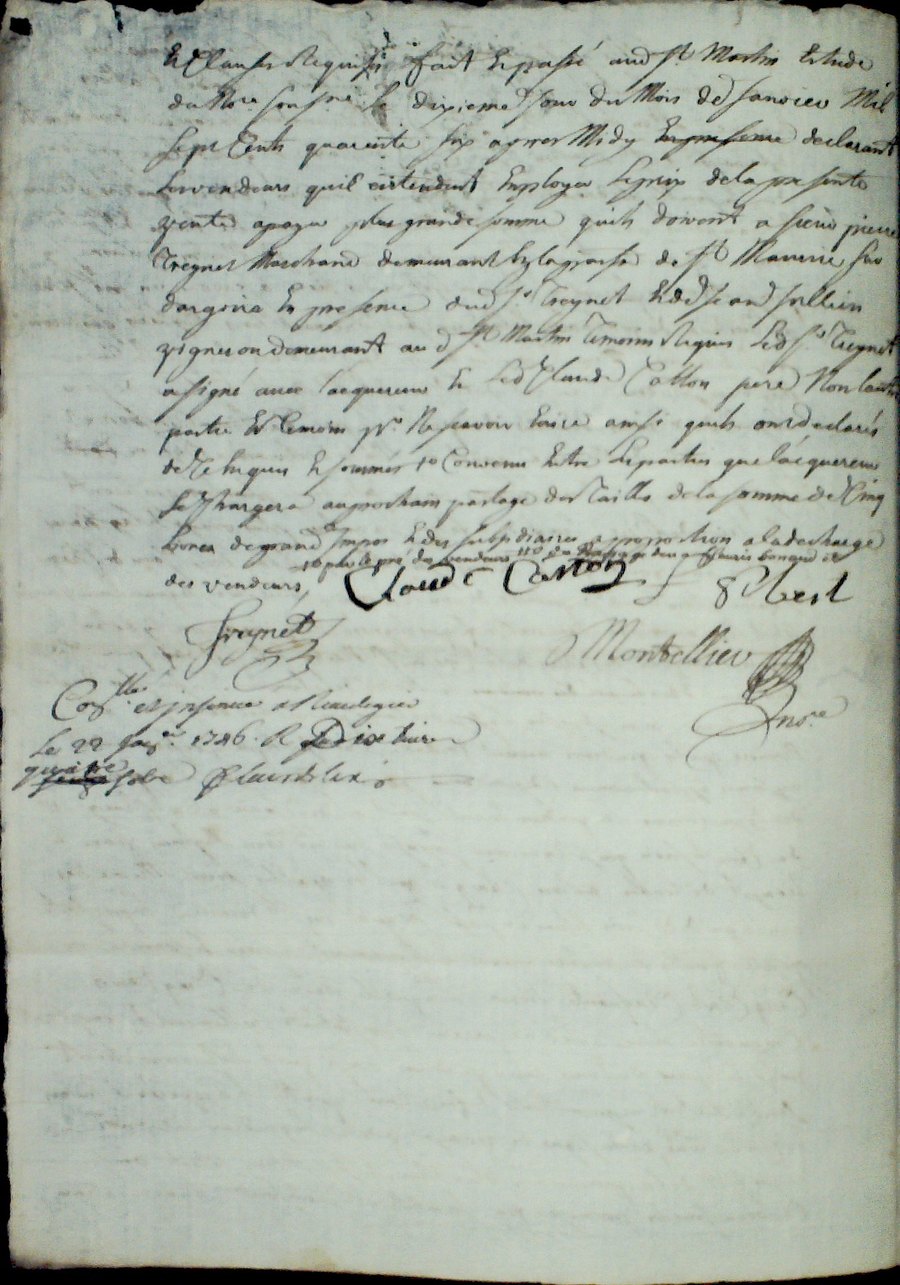 Et Clauses Requises fait Et passé aud St Martin Estude
du No.re sousne Le dixieme Jour du Mois de Janvier Mil
Sept Cents quarante Six apres Midy En presence declarant
Les vendeurs quil entendent Employer Le prix de la presente
vente a payer plus grande somme quils doivent a sieur pierre
Treynet Marchand demeurant de St Maurice sur
dargoire En presence dud Sr Treynet Et de Jean Jullien
vigneron demeurant aud St Martin Temoins Requis Led Sr Treynet
a signé avec l'acquereur Et Led Claude Catton pere Non l'autre
partie Et Temoin pr Ne scavoir Ecrire ainsi quils ont declarés
de ce Enquis Et sommés Convenu Entre Les parties que l'acquereur
Se Chargera au prochain partage des Tailles de la somme de Cinq
Livres de grand Impos Et des Subsidiaires a proportion a la decharge
des vendeurs
Claude Caston
Treynet
Montellier
Nore
Con.lle et insinué a Rivedegier
Le 22 Janer 1746. R Dix livres
quatre sols